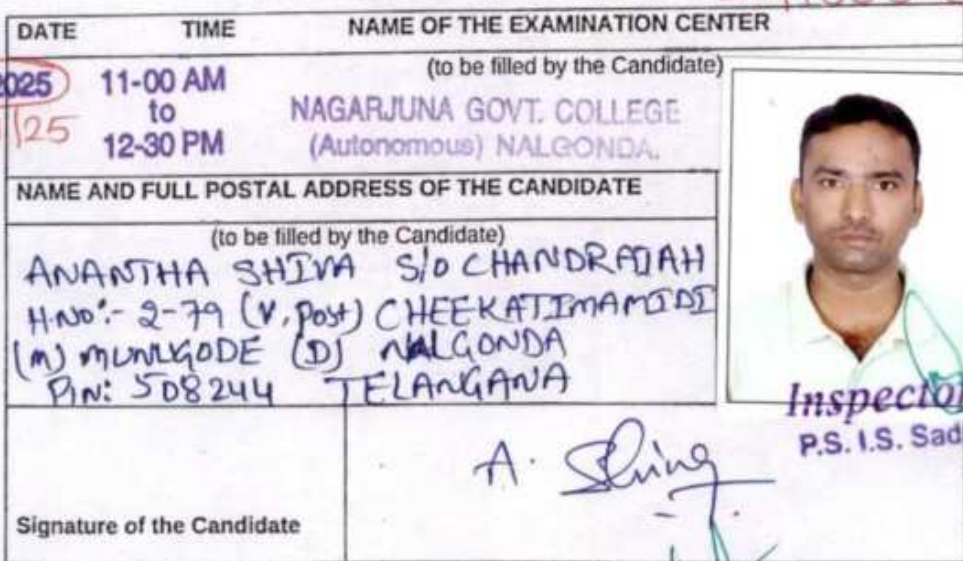 DATE TIME NAME OF THE EXAMINATION CENTER
(to be filled by the Candidate)
2025 11-00 AM
to
12-30 PM
NAGARJUNA GOVT. COLLEGE
(Autonomous) NALGONDA.
NAME AND FULL POSTAL ADDRESS OF THE CANDIDATE
(to be filled by the Candidate)
ANANTHA SHIVA S/O CHANDRAIAH
H.NO:- 2-79 (V, Post) CHEEKATIMAMIDI
(M) MUNUGODE (D) NALGONDA
PIN: 508244 TELANGANA
Inspector
P.S. I.S. Sad
A. Shiva
Signature of the Candidate